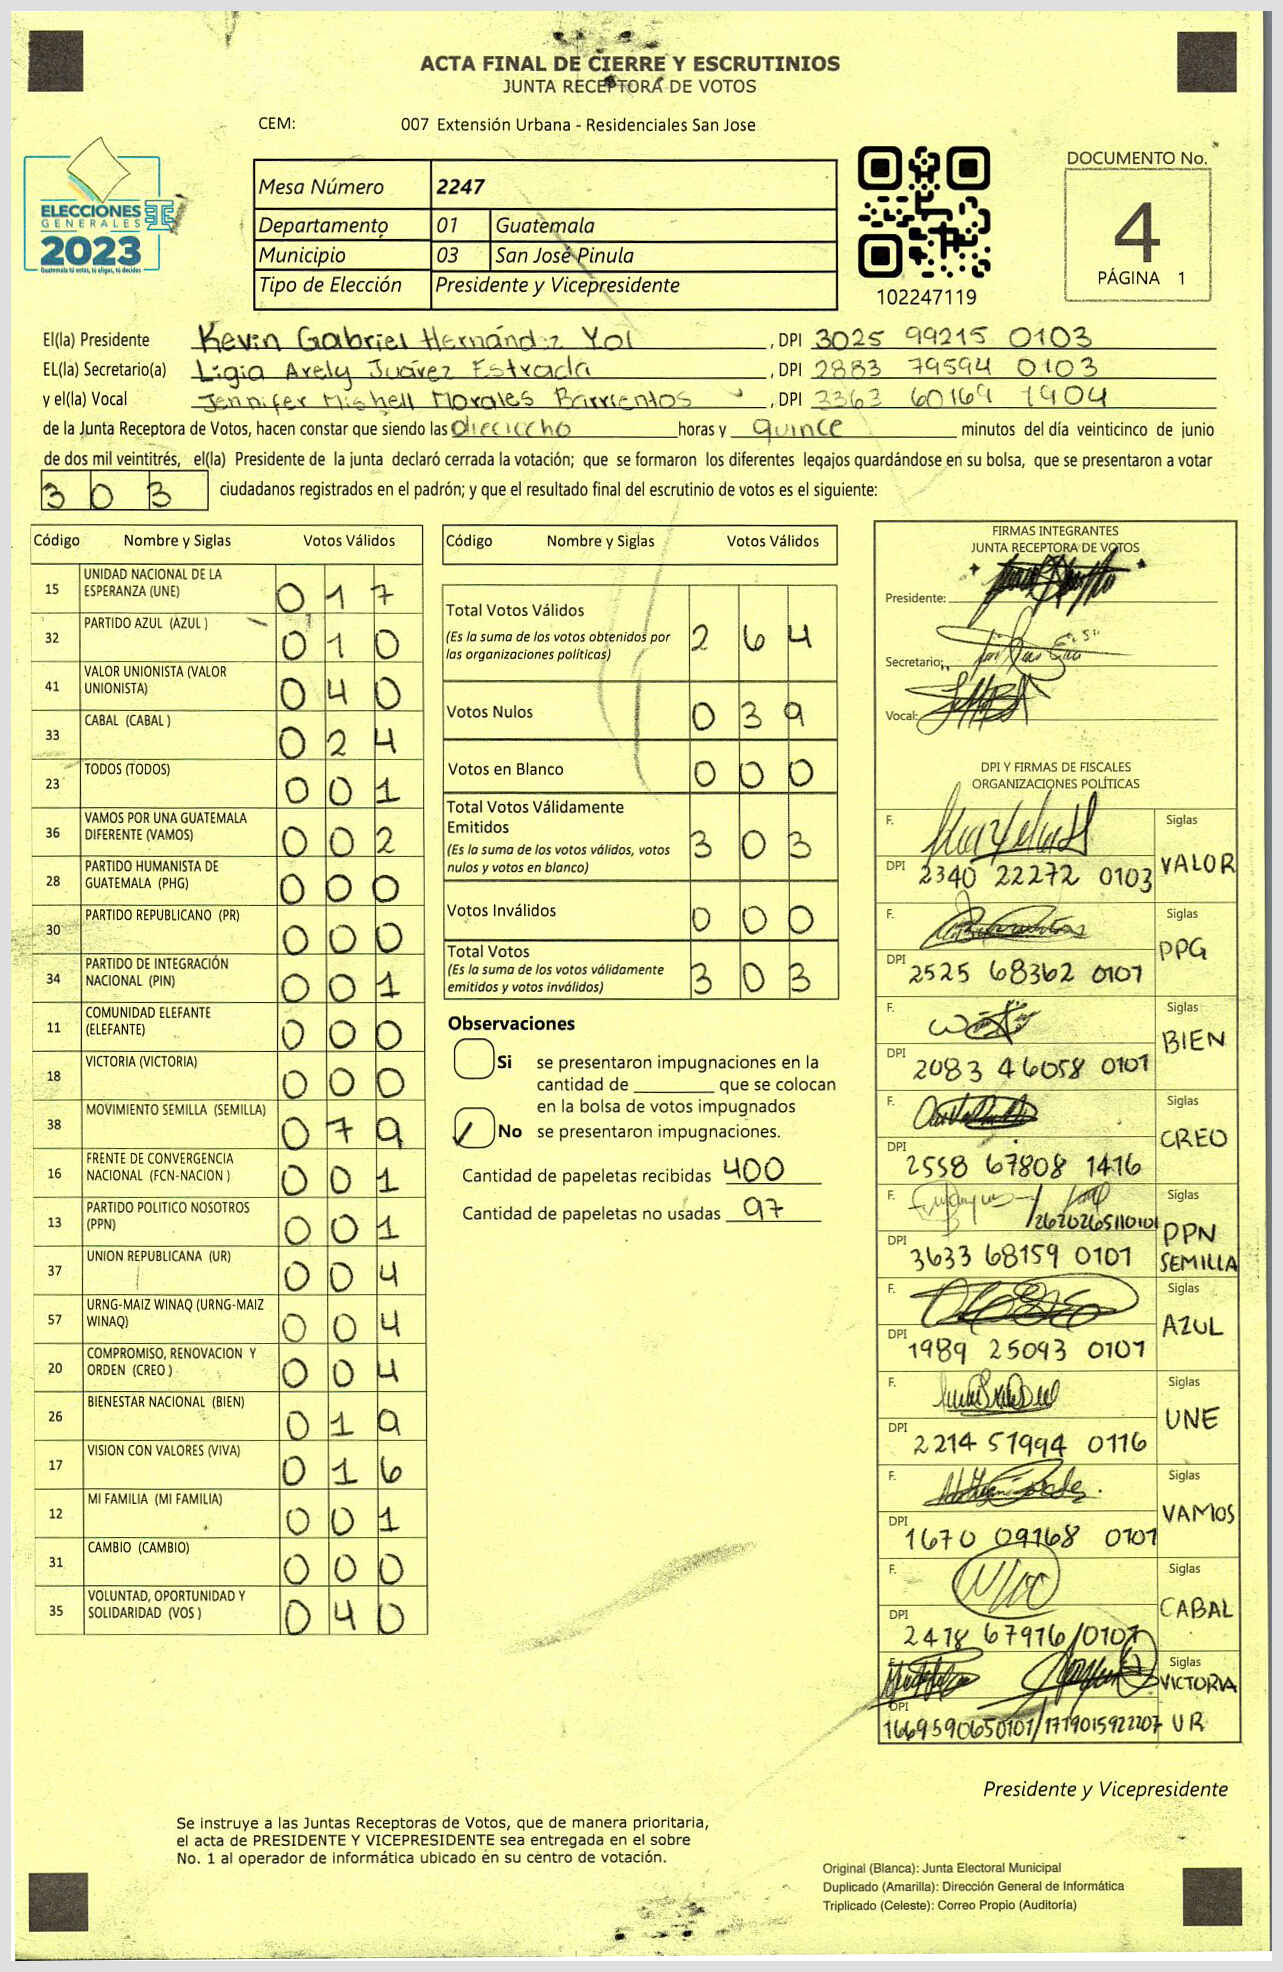 ACTA FINAL DE CIERRE Y ESCRUTINIOS
JUNTA RECEPTORA DE VOTOS
CEM: 007 Extensión Urbana - Residenciales San Jose
ELECCIONES
GENERALES
2023
Guatemala tú votas, tú eliges, tú decides
Mesa Número 2247
Departamento 01 Guatemala
Municipio 03 San José Pinula
Tipo de Elección Presidente y Vicepresidente
102247119
DOCUMENTO No.
4
PÁGINA 1
El(la) Presidente Kevin Gabriel Hernández Yol, DPI 3025 99215 0103
EL(la) Secretario(a) Ligia Arely Juárez Estrada, DPI 2883 79594 0103
y el(la) Vocal Jennifer Mishell Morales Barrientos, DPI 60169 1904
de la Junta Receptora de Votos, hacen constar que siendo las dieciocho horas y quince minutos del día veinticinco de junio
de dos mil veintitrés, el(la) Presidente de la junta declaró cerrada la votación; que se formaron los diferentes legajos guardándose en su bolsa, que se presentaron a votar
303 ciudadanos registrados en el padrón; y que el resultado final del escrutinio de votos es el siguiente:
Código Nombre y Siglas Votos Válidos
15 UNIDAD NACIONAL DE LA ESPERANZA (UNE) 017
32 PARTIDO AZUL (AZUL ) 010
41 VALOR UNIONISTA (VALOR UNIONISTA) 040
33 CABAL (CABAL ) 024
23 TODOS (TODOS) 001
36 VAMOS POR UNA GUATEMALA DIFERENTE (VAMOS) 002
28 PARTIDO HUMANISTA DE GUATEMALA (PHG) 000
30 PARTIDO REPUBLICANO (PR) 000
34 PARTIDO DE INTEGRACIÓN NACIONAL (PIN) 001
11 COMUNIDAD ELEFANTE (ELEFANTE) 000
18 VICTORIA (VICTORIA) 000
38 MOVIMIENTO SEMILLA (SEMILLA) 079
16 FRENTE DE CONVERGENCIA NACIONAL (FCN-NACION ) 001
13 PARTIDO POLITICO NOSOTROS (PPN) 001
37 UNION REPUBLICANA (UR) 004
57 URNG-MAIZ WINAQ (URNG-MAIZ WINAQ) 004
20 COMPROMISO, RENOVACION Y ORDEN (CREO ) 004
26 BIENESTAR NACIONAL (BIEN) 019
17 VISION CON VALORES (VIVA) 016
12 MI FAMILIA (MI FAMILIA) 001
31 CAMBIO (CAMBIO) 000
35 VOLUNTAD, OPORTUNIDAD Y SOLIDARIDAD (VOS ) 040
Código Nombre y Siglas Votos Válidos
Total Votos Válidos 264
(Es la suma de los votos obtenidos por
las organizaciones políticas)
Votos Nulos 039
Votos en Blanco 000
Total Votos Válidamente
Emitidos 303
(Es la suma de los votos válidos, votos
nulos y votos en blanco)
Votos Inválidos 000
Total Votos 303
(Es la suma de los votos válidamente
emitidos y votos inválidos)
Observaciones
Si se presentaron impugnaciones en la
cantidad de ________ que se colocan
en la bolsa de votos impugnados
No se presentaron impugnaciones.
Cantidad de papeletas recibidas 400
Cantidad de papeletas no usadas 97
FIRMAS INTEGRANTES
JUNTA RECEPTORA DE VOTOS
Presidente:
Secretario:
Vocal:
DPI Y FIRMAS DE FISCALES
ORGANIZACIONES POLÍTICAS
F. Siglas
DPI 2340 22272 0103 VALOR
F. Siglas
DPI 2525 68362 0101 PPG
F. Siglas
DPI 2083 46058 0101 BIEN
F. Siglas
DPI 2558 67808 1416 CREO
F. /2620265110101 Siglas
DPI 3633 68159 0101 PPN SEMILLA
F. Siglas
DPI 1989 25093 0101 AZUL
F. Siglas
DPI 2214 57994 0116 UNE
F. Siglas
DPI 1670 09168 0101 VAMOS
F. Siglas
DPI 2478 67976/0101 CABAL
F. Siglas VICTORIA
DPI 1669590650101/1719015922207 UR
Presidente y Vicepresidente
Se instruye a las Juntas Receptoras de Votos, que de manera prioritaria,
el acta de PRESIDENTE Y VICEPRESIDENTE sea entregada en el sobre
No. 1 al operador de informática ubicado en su centro de votación.
Original (Blanca): Junta Electoral Municipal
Duplicado (Amarilla): Dirección General de Informática
Triplicado (Celeste): Correo Propio (Auditoría)